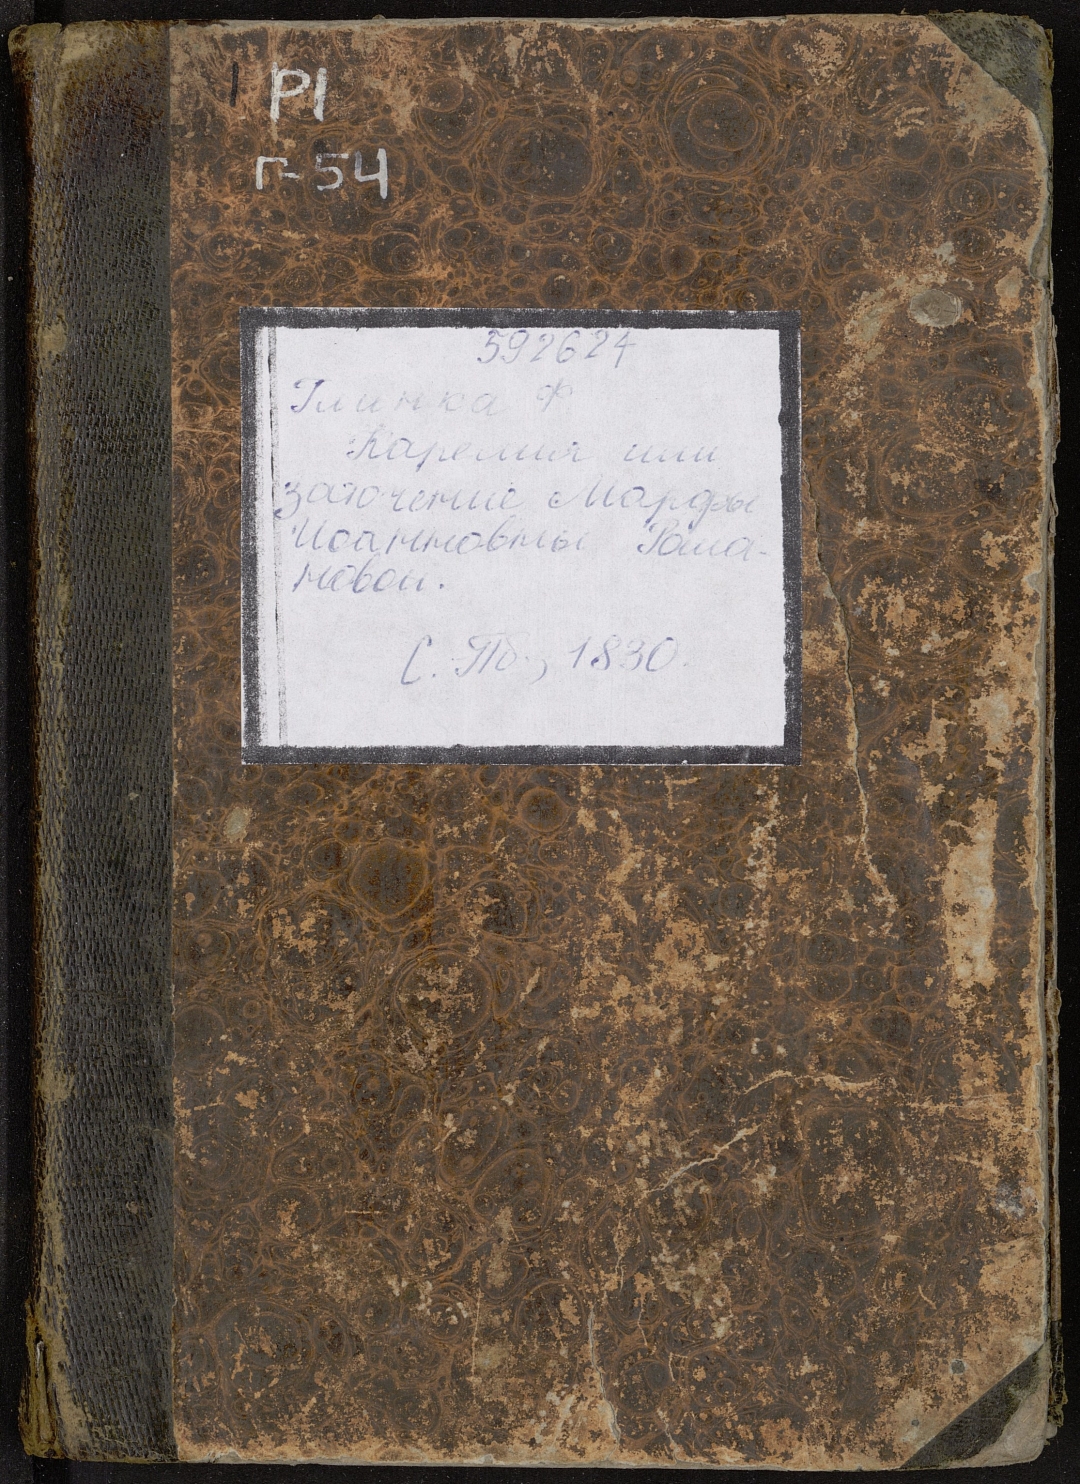 Р1
Г-54
592624
Глинка Ф
Карелия или
заточение Марфы
Иоанновны Рома-
новой.
С. Пб., 1830.